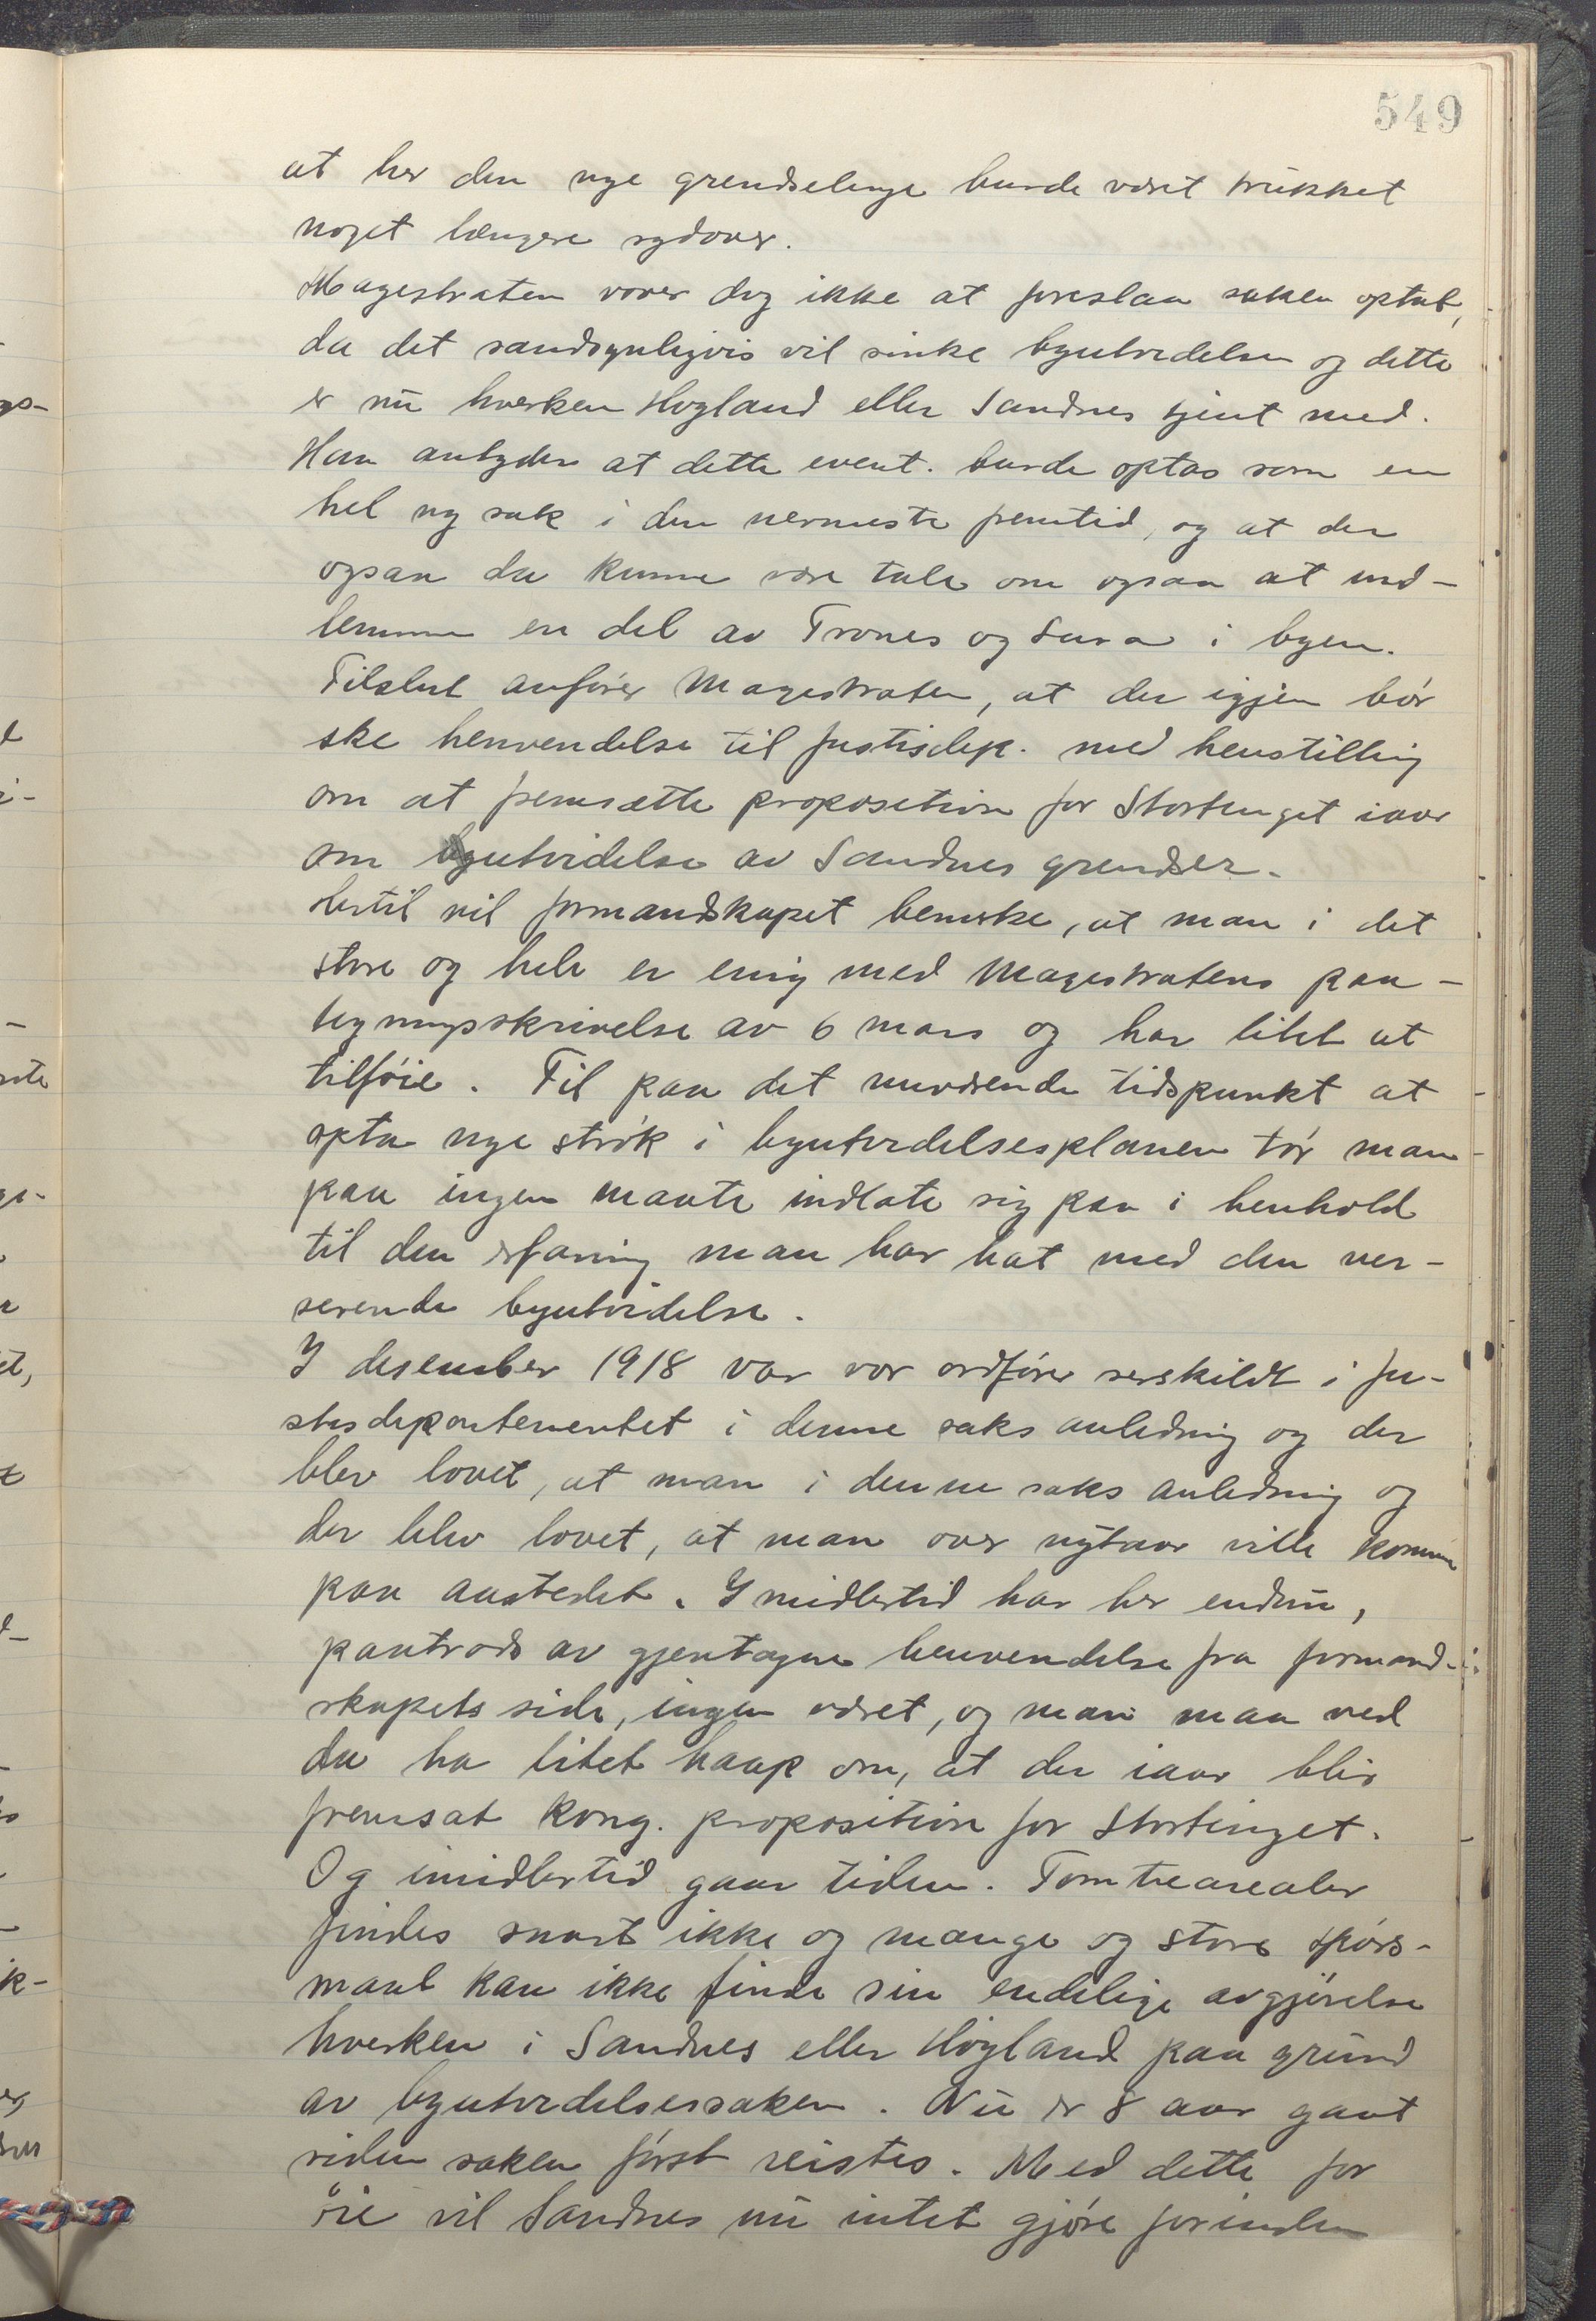 549
at her den nye grendselinje burde været trukket
noget længere sydover.
Magestraten vover dog ikke at foreslaa saken optat,
da det sandsynligvis vil sinke byutvidelsen og dette
er nu hverken Høgland eller Sandnes tjent med.
Han antyder at dette event. burde optas som en
hel ny sak i den nermeste fremtid, og at der
ogsaa da kunne være tale om ogsaa at ind-
lemme en del av Trones og Lura i byen.
Tilslut anfører Magestraten, at der igjen bør
ske henvendelse til Justisdep. med henstilling
om at fremsætte proposition for Stortinget iaar
om utvidelse av Sandnes grendser.
Hertil vil formandskapet bemerke, at man i det
store og hele er enig med Magestratens paa-
tegningsskrivelse av 6 mars og har litet at
tilføie. Til paa det nuværende tidspunkt at
opta nye strøk i byutvidelsesplanen tør man
paa ingen maate indlate sig paa i henhold
til den erfaring man har hat med den ver-
serende byutvidelse.
I desember 1918 var vor ordfører serskildt i Ju-
stisdepartementet i denne saks anledning og der
blev lovet, at man i denne saks anledning og
der blev lovet, at man over nytaar ville komme
paa aastedet. Imidlertid har her endnu,
paatrods av gjentagne henvendelse fra formand-
skapets side, ingen været, og man maa vel
da ha litet haap om, at der iaar blir
fremsat kong. proposition for Stortinget.
Og imidlertid gaar tiden. Tomtearealer
findes snart ikke og mange og store spørs-
maal kan ikke finde sin endelige avgjørelse
hverken i Sandnes eller Høyland paa grund
av byutvidelsessaken. Nu er 8 aar gaat
siden saken først reistes. Med dette for
øie vil Sandnes nu intet gjøre forinden